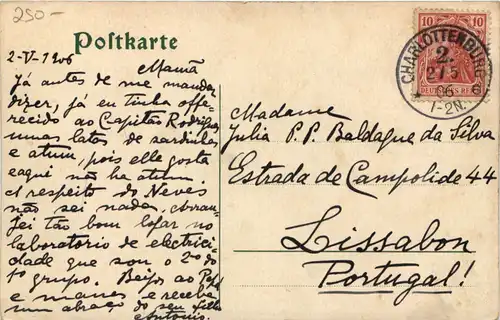 250-
Postkarte
2-V-1906
Mamã
Já antes de me mandar
dizer, já eu tinha offe-
recido ao Capitão Rodrigues
umas latas de sardinhas
e atum, pois elle gosta
e aqui não ha atum.
A respeito do Neves
não sei nada. Arran-
jei tão bom lugar no
laboratorio de electrici-
dade que sou o 2º do
1º grupo. Beijos ao Papá
e manos e receba
um abraço do seu filho
Antonio.
10 10
DEUTSCHES REICH
CHARLOTTENBURG
2.
2 5
06
1-2N.
Madame
Julia P. P. Baldaque da Silva
Estrada de Campolide 44
Lissabon
Portugal!